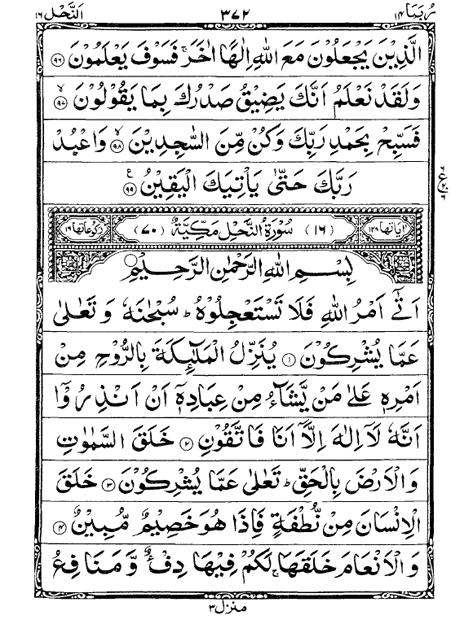 رُبَمَا ١٤ ٣٧٢ اَلنَّحْل ١٦
الَّذِيْنَ يَجْعَلُوْنَ مَعَ اللّٰهِ اِلٰهًا اٰخَرَ ۚ فَسَوْفَ يَعْلَمُوْنَ ﴿٩٦﴾
وَلَقَدْ نَعْلَمُ اَنَّكَ يَضِيْقُ صَدْرُكَ بِمَا يَقُوْلُوْنَ ﴿٩٧﴾
فَسَبِّحْ بِحَمْدِ رَبِّكَ وَكُنْ مِّنَ السّٰجِدِيْنَ ﴿٩٨﴾ وَاعْبُدْ
رَبَّكَ حَتّٰى يَاْتِيَكَ الْيَقِيْنُ ﴿٩٩﴾
اٰيَاتُهَا ١٢٨ (١٦) سُوْرَةُ النَّحْلِ مَكِّيَّةٌ (٧٠) رُكُوْعَاتُهَا ١٦
بِسْمِ اللّٰهِ الرَّحْمٰنِ الرَّحِيْمِ
اَتٰٓى اَمْرُ اللّٰهِ فَلَا تَسْتَعْجِلُوْهُ ؕ سُبْحٰنَهٗ وَتَعٰلٰى
عَمَّا يُشْرِكُوْنَ ﴿١﴾ يُنَزِّلُ الْمَلٰٓئِكَةَ بِالرُّوْحِ مِنْ
اَمْرِهٖ عَلٰى مَنْ يَّشَآءُ مِنْ عِبَادِهٖٓ اَنْ اَنْذِرُوْٓا
اَنَّهٗ لَاۤ اِلٰهَ اِلَّاۤ اَنَا فَاتَّقُوْنِ ﴿٢﴾ خَلَقَ السَّمٰوٰتِ
وَالْاَرْضَ بِالْحَقِّ ؕ تَعٰلٰى عَمَّا يُشْرِكُوْنَ ﴿٣﴾ خَلَقَ
الْاِنْسَانَ مِنْ نُّطْفَةٍ فَاِذَا هُوَ خَصِيْمٌ مُّبِيْنٌ ﴿٤﴾
وَالْاَنْعَامَ خَلَقَهَا ۚ لَكُمْ فِيْهَا دِفْءٌ وَّمَنَافِعُ
منزل ٣